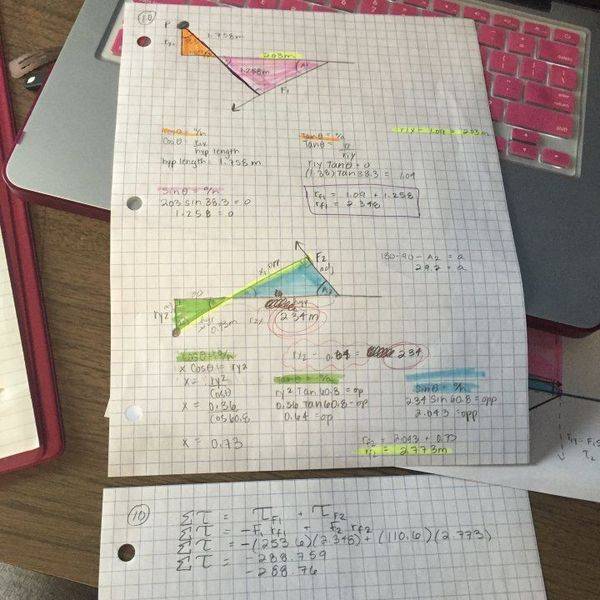 10
P
1.758m
ry1
2.03m
1.258m
A1
F1
Cosθ = a/h
Cosθ = ry1
hyp length
hyp length = 1.758 m
Tanθ = o/a
Tanθ = o
r1y
r1y Tanθ = o
(1.38) Tan 38.3 = 1.09
sinθ = o/h
2.03 sin 38.3 = o
1.258 = o
rF1 = 1.09 + 1.258
rF1 = 2.348
180-90-A2 = a
29.2 = a
F2
opp
adj
A2
ry2
0.73m
r2x
2.34m
Cosθ = a/h
x Cosθ = ry2
x = ry2
Cosθ
x = 0.36
cos 60.8
x = 0.73
ry2 Tan 60.8 = op
0.36 Tan 60.8 = op
0.64 = op
sinθ = o/h
2.34 sin 60.8 = opp
2.043 = opp
rF2 = 2.043 + 0.73
rF2 = 2.773m
10
Στ = τF1 + τF2
Στ = -F1 rF1 + F2 rF2
Στ = -(253.6)(2.348) + (110.6)(2.773)
Στ = -288.759
-288.76